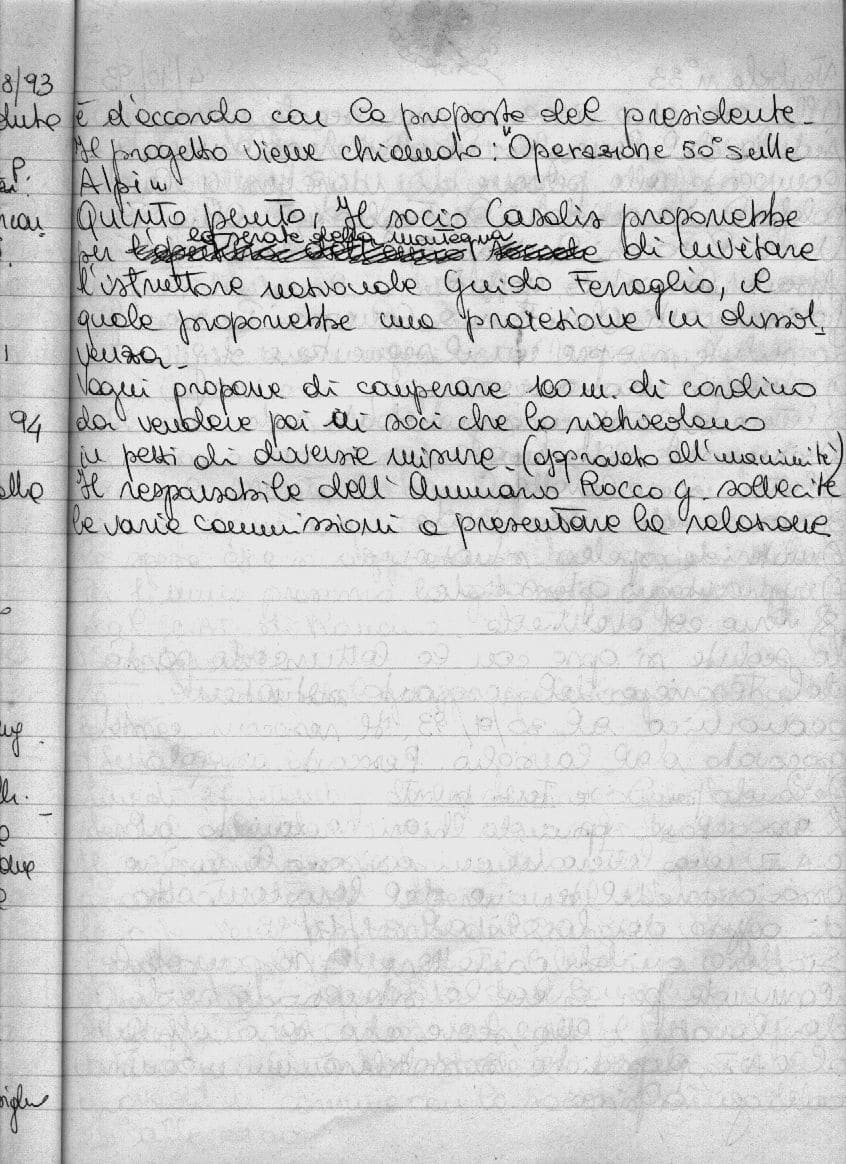 8/93
è d'accordo con la proposta del presidente.
Il progetto viene chiamato: "Operazione 50° sulle
Alpi"
Quinto punto, Il socio Casalis proporrebbe
per le serate della montagna di invitare
l'istruttore nazionale Guido Ferraglio, il
quale proporrebbe una proiezione in dissol
venza.
propone di comperare 100 m. di cordino
94
da vendere poi ai soci che lo richiedono
in pezzi di diverse misure. (approvato all'unanimità)
Il responsabile dell'Annuario Rocco G. sollecita
le varie commissioni a presentare la relazione